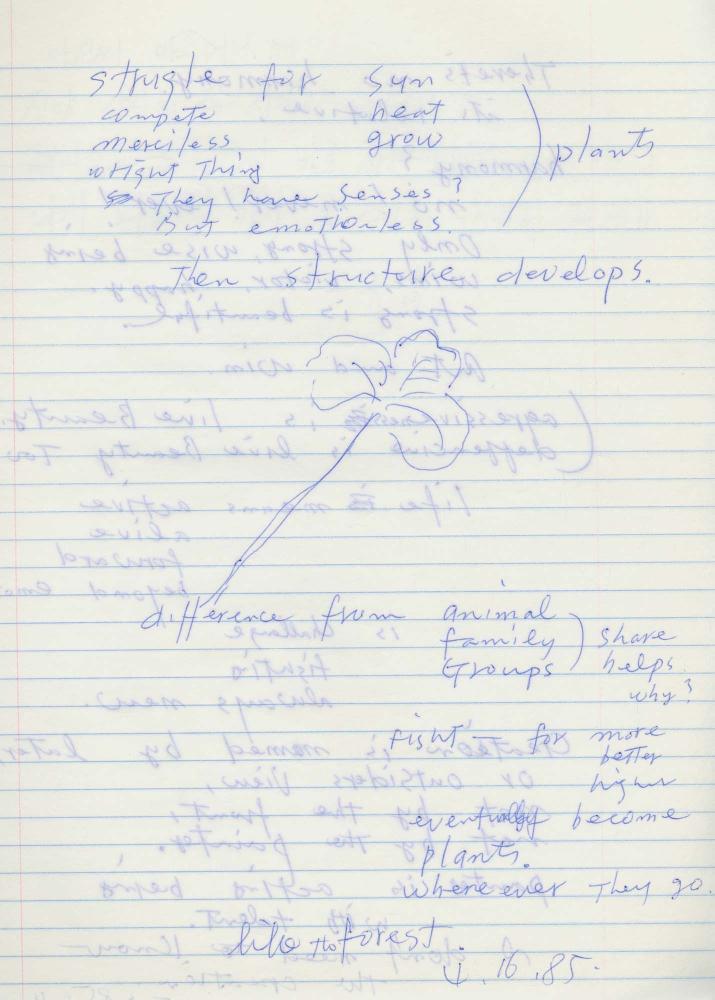 struggle for sun
compete heat
merciless, grow
Thing
plants
They have senses?
But emotionless.
Then structure develops.
difference from animal
family share
Groups helps
why?
fight for more
better
higher
eventually become
plants.
where ever They go.
forest
16.85.